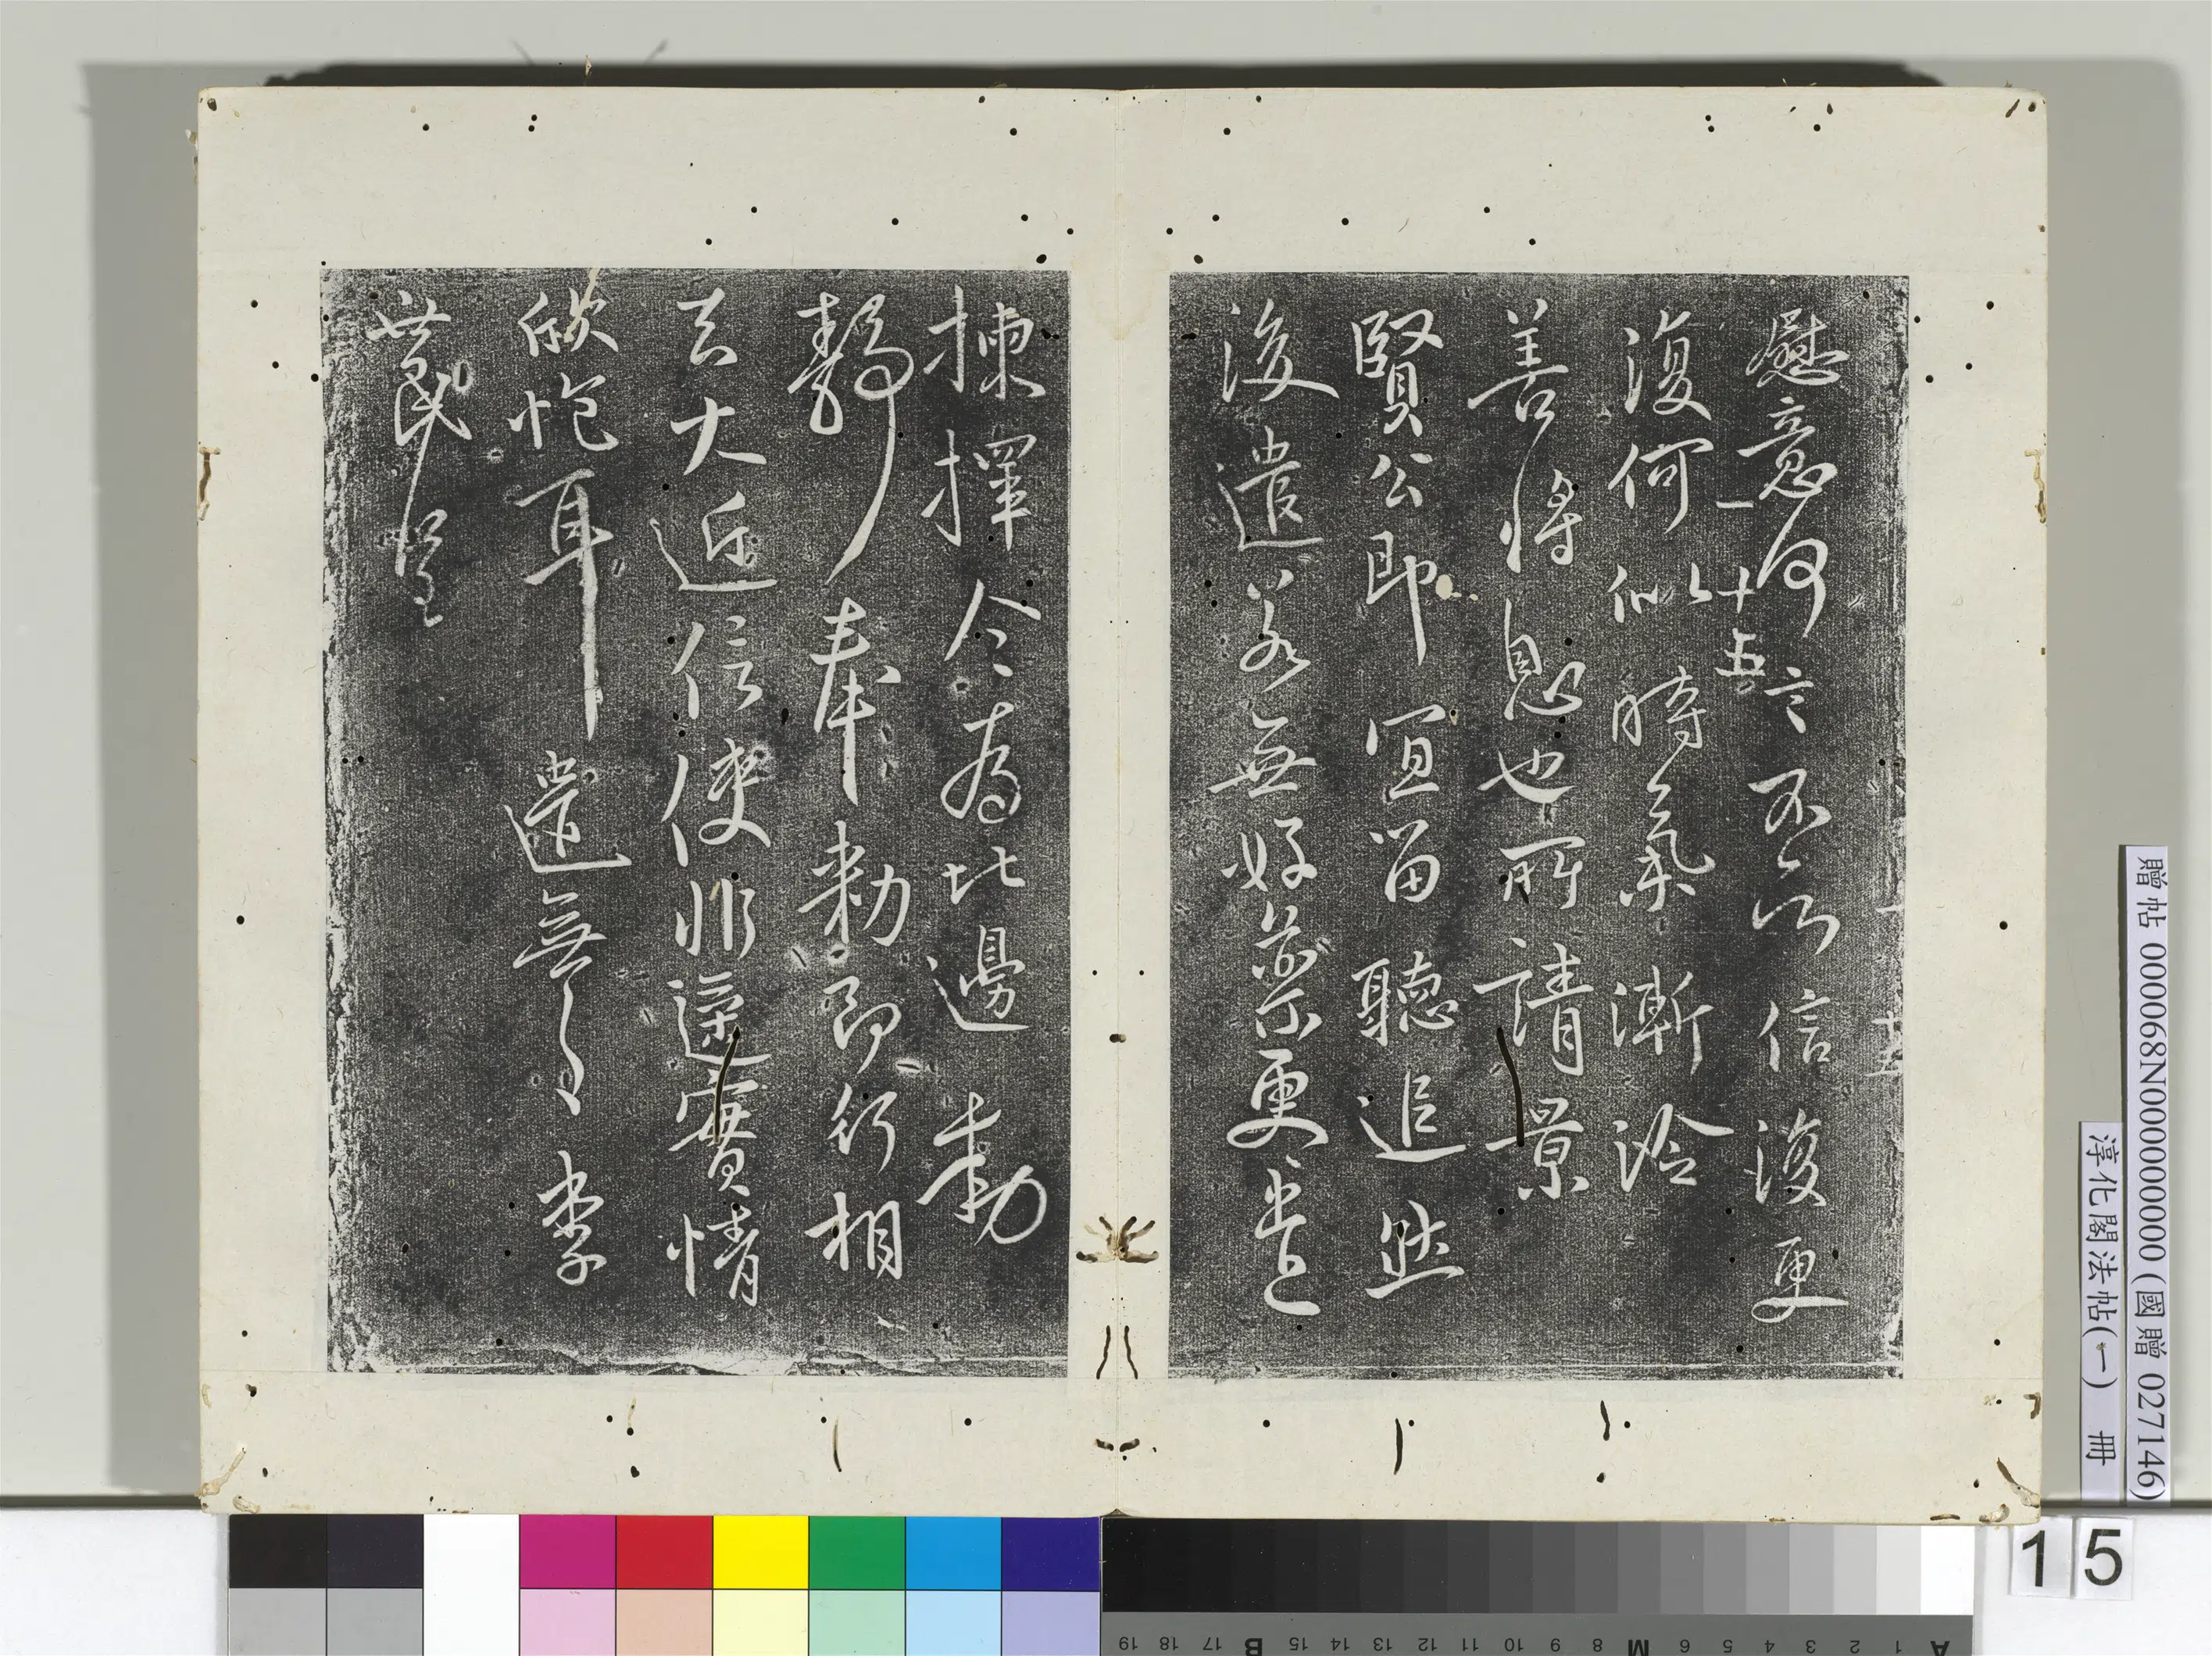 慰意何言不以信復更
一 十五
復何似時氣漸冷
善將息也所請景
賢公即宜留聽追然
後遣若無好藥更遣
揀擇今為此邊動
靜奉勅即行相
去大近信使非遙實情
欣悅耳遣無之李
世民呈
贈帖 000068N000000000 (國贈 027146)
淳化閣法帖(一) 冊
15
A 1 2 3 4 5 6 M 8 9 10 11 12 13 14 15 B 17 18 19